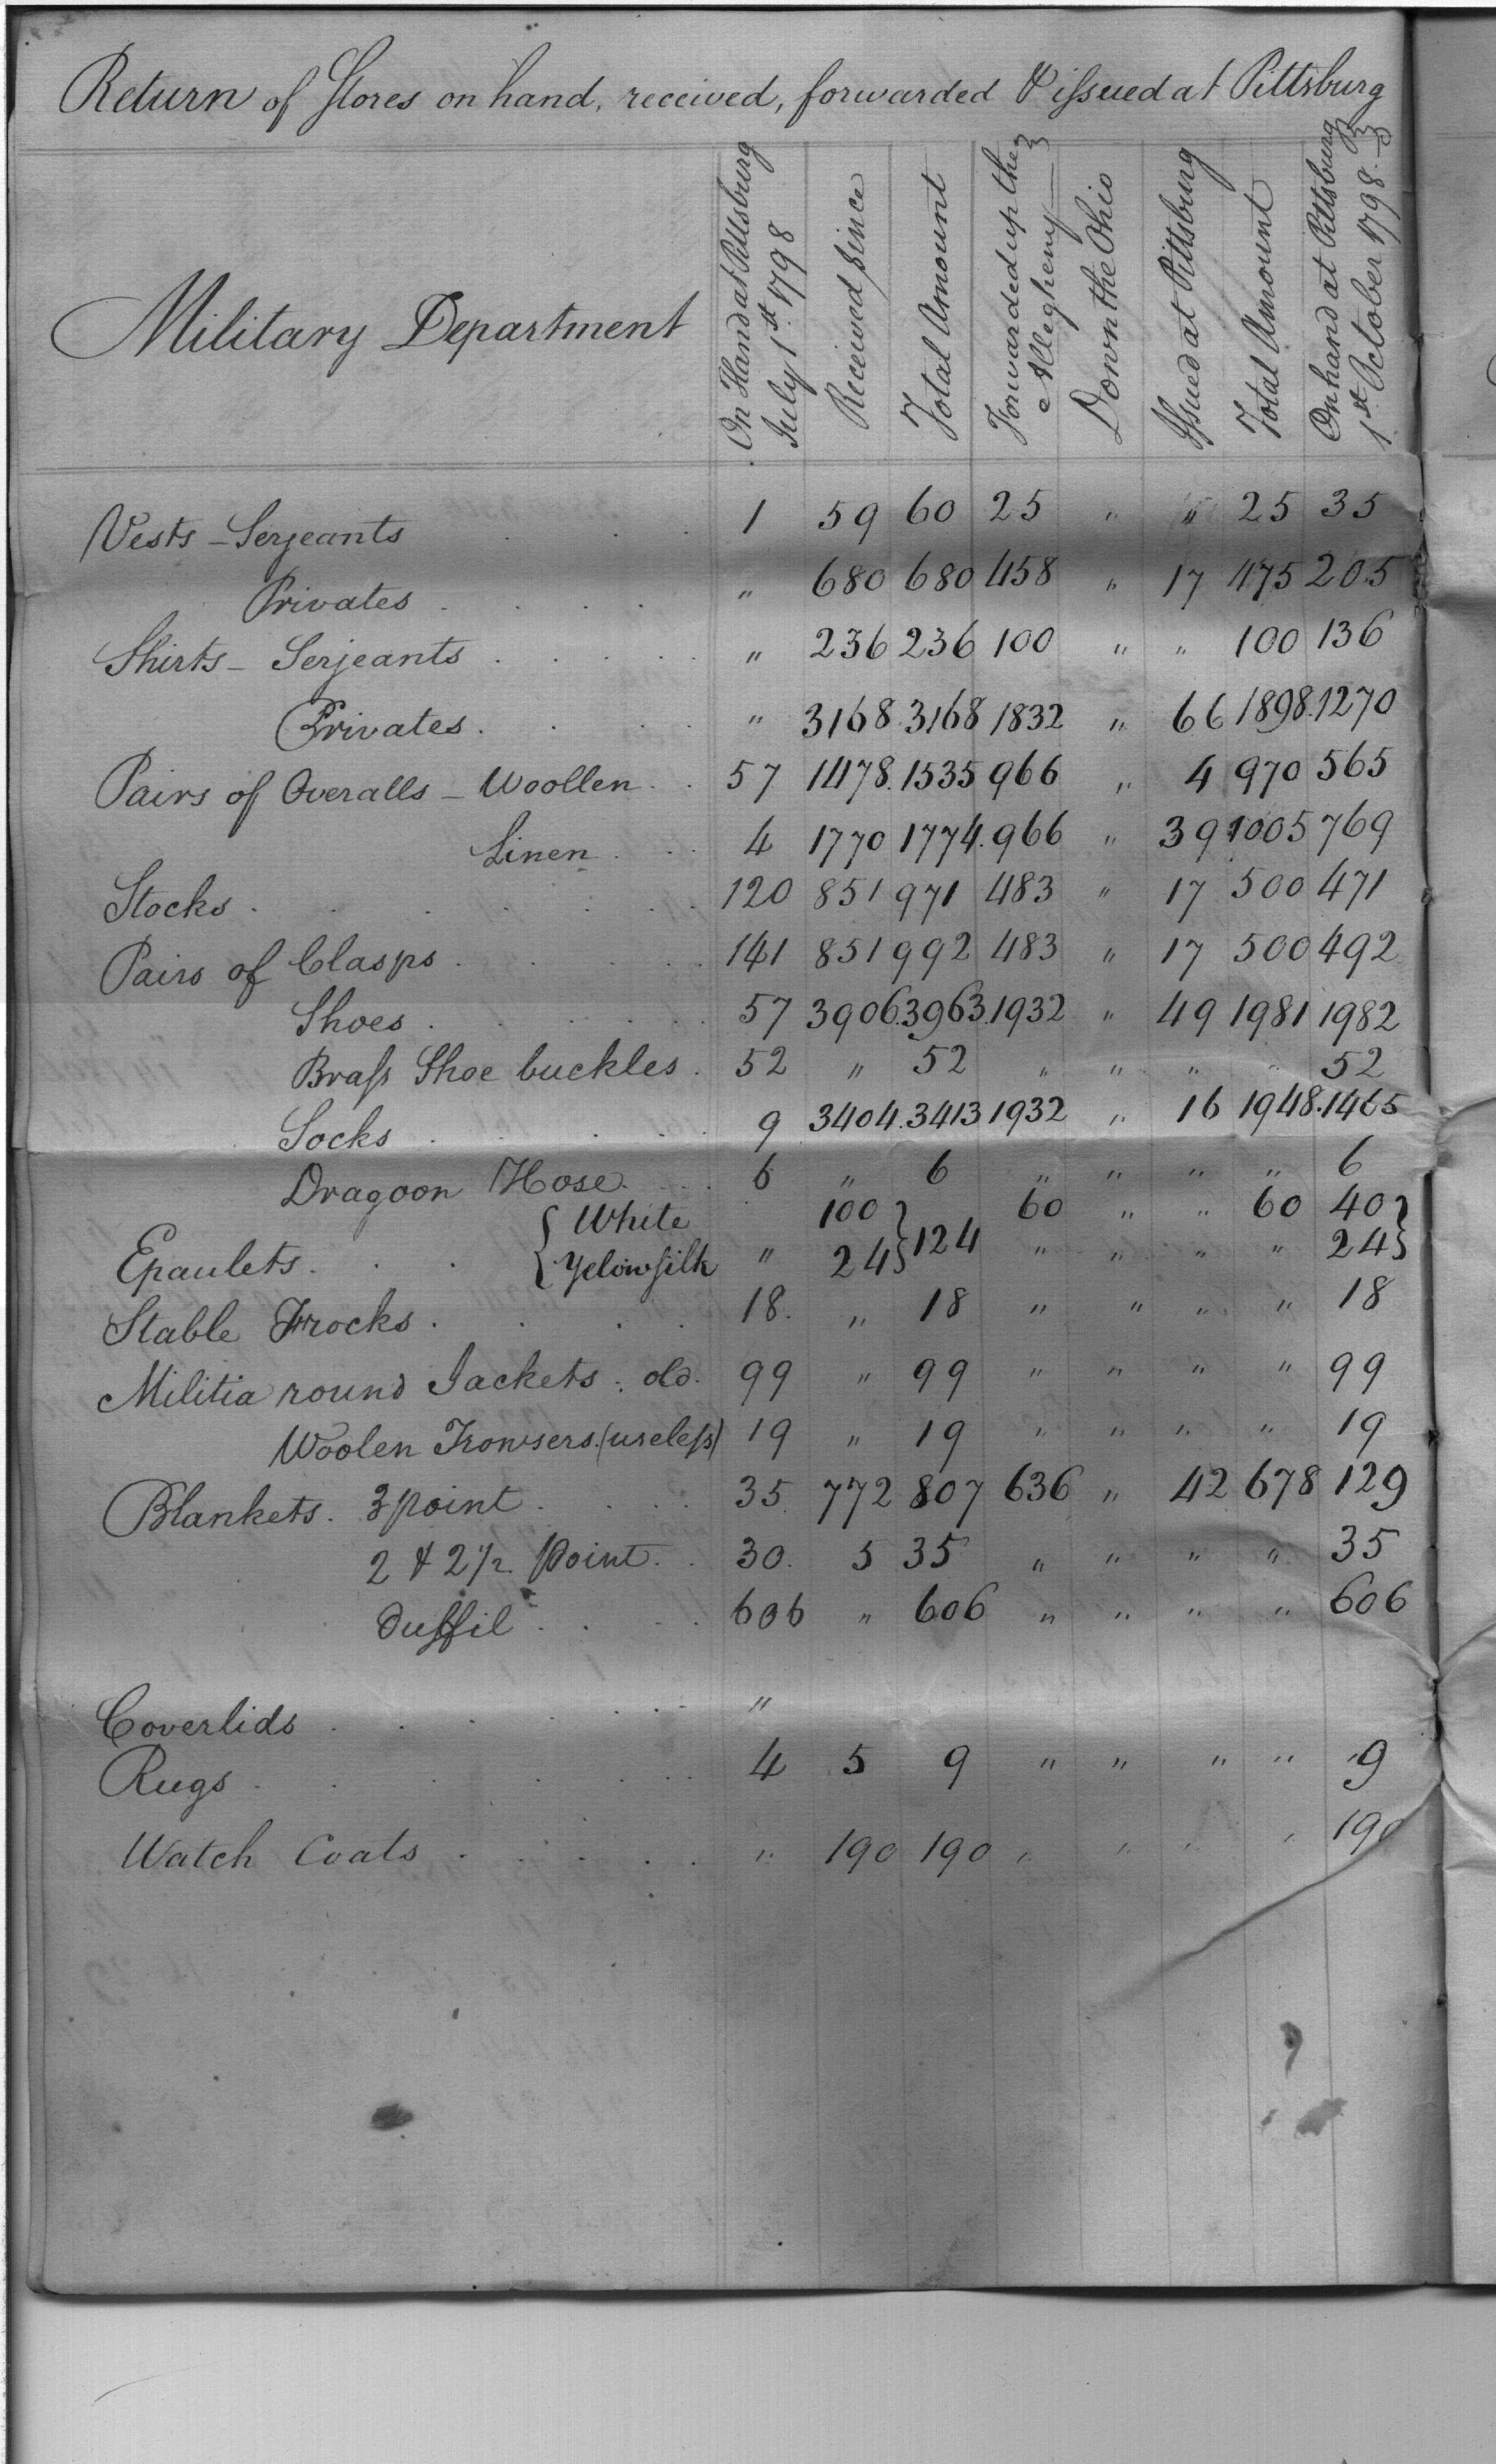 Return of Stores on hand, received, forwarded & issued at Pittsburg
Military Department
On Hand at Pittsburg July 1st. 1798
Received since
Total Amount
Forwarded up the Allegheny
Down the Ohio
Issued at Pittsburg
Total Amount
On hand at Pittsburg 1st. October 1798.
Vests - Serjeants . . . 1 59 60 25 " " 25 35
Privates . . . . " 680 680 458 " 17 475 205
Shirts - Serjeants . . . . . " 236 236 100 " " 100 136
Privates . . . . " 3168. 3168 1832 " 66 1898. 1270
Pairs of Overalls - Woollen . . 57 1478. 1535 966 " 4 970 565
Linen . . . 4 1770 1774. 966 " 39 1005 769
Stocks . . . . . . . 120 851 971 483 " 17 500 471
Pairs of Clasps . . . . . 141 851 992 483 " 17 500 492
Shoes . . . . . 57 3906. 3963. 1932 " 49 1981 1982
Brass Shoe buckles . 52 " 52 " " " " 52
Socks . . . . . 9 3404. 3413 1932 " 16 1948. 1465
Dragoon Hose . . . 6 " 6 " " " " 6
{ White 100 } 60 " " 60 40 }
Epaulets . . . { Yelow silk " 24 } 124 " " " " 24 }
Stable Frocks . . . . 18. " 18 " " " " 18
Militia round Jackets . old. 99 " 99 " " " " 99
Woolen Trowsers. (useless) 19 " 19 " " " " 19
Blankets. 3 point . . . . 35 772 807 636 " 42 678 129
2 & 2 1/2. point . . 30. 5 35 " " " " 35
Duffil . . . 606 " 606 " " " " 606
Coverlids . . . . . . . "
Rugs . . . . . . . 4 5 9 " " " " 9
Watch Coats . . . . . " 190 190 " " " " 190